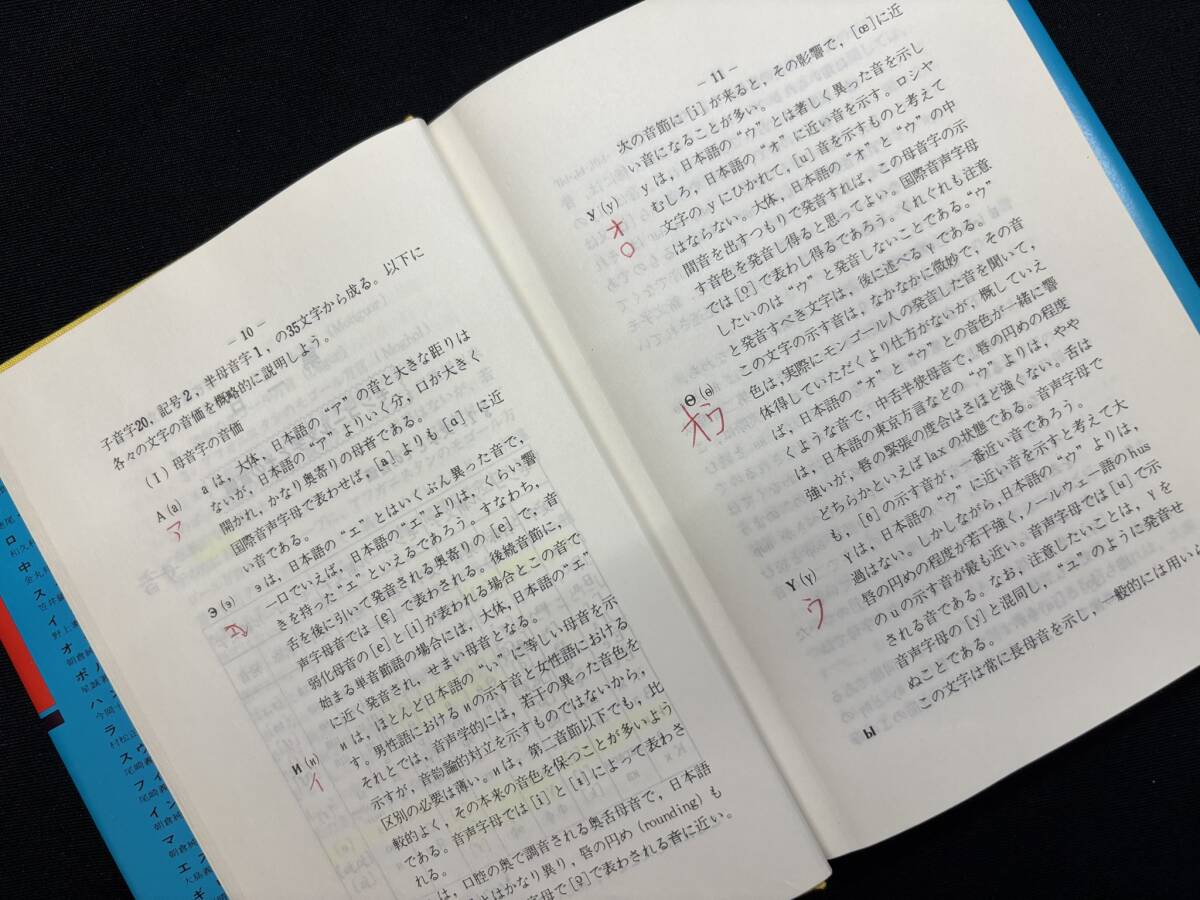 — 10 —
子音字20, 記号2, 半母音字1, の35文字から成る。以下に
各々の文字の音価を概略的に説明しよう。
(1) 母音字の音価
А (а) аは, 大体, 日本語の“ア”の音と大きな距りは
ア
ないが, 日本語の“ア”よりいく分, 口が大きく
開かれ, かなり奥寄りの母音である。
国際音声字母で表わせば, [a] よりも [ɑ] に近
い音である。
Э (э) эは, 日本語の“エ”とはいくぶん異った音で,
エ
一口でいえば, 日本語の“エ”よりは, くらい響
きを持った“エ”といえるであろう。すなわち,
舌を後に引いて発音される奥寄りの [e] で, 音
声字母音では [e̠] で表わされる。後続音節に,
弱化母音の [e] と [i] が表われる場合とこの音で
始まる単音節語の場合には, 大体, 日本語の“エ”
に近く発音され, せまい母音となる。
И (и) иは, ほとんど日本語の“い”に等しい母音を示
イ
す。男性語におけるиの示す音と女性語における
それとでは, 音声学的には, 若干の異った音色を
示すが, 音韻論的対立を示すものではないから,
区別の必要は薄い。иは, 第二音節以下でも, 比
較的よく, その本来の音色を保つことが多いよう
である。音声字母では [i] と [ɪ] によって表わさ
れる。
は, 口腔の奥で調音される奥舌母音で, 日本語
とはかなり異り, 唇の円め (rounding) も
字母で [ɔ] で表わされる音に近い。
— 11 —
次の音節に [i] が来ると, その影響で, [œ] に近
い音になることが多い。
У (у) уは, 日本語の“ウ”とは著しく異った音を示し
オ
○
むしろ, 日本語の“オ”に近い音を示す。ロシヤ
文字のуにひかれて, [u] 音を示すものと考えて
はならない。大体, 日本語の“オ”と“ウ”の中
間音を出すつもりで発音すれば, この母音字の示
す音色を発音し得ると思ってよい。国際音声字母
では [o̞] で表わし得るであろう。くれぐれも注意
したいのは“ウ”と発音しないことである。“ウ”
と発音すべき文字は, 後に述べるүである。
Ө (ө) この文字の示す音は, なかなかに微妙で, その音
オウ
色は, 実際にモンゴール人の発音した音を聞いて,
体得していただくより仕方がないが, 概していえ
ば, 日本語の“オ”と“ウ”との音色が一緒に響
くような音で, 中舌半狭母音で, 唇の円めの程度
は, 日本語の東京方言などの“ウ”よりは, やや
強いが, 唇の緊張の度合はさほど強くない。舌は
どちらかといえば lax の状態である。音声字母で
も, [ɵ] の示す音が, 一番近い音であろう。
Ү (ү) үは, 日本語の“ウ”に近い音を示すと考えて大
ウ
過はない。しかしながら, 日本語の“ウ”よりは,
唇の円めの程度が若干強く, ノールウェー語の hus
のuの示す音が最も近い。音声字母では [ʉ] で示
される音である。なお, 注意したいことは, үを
音声字母の [y] と混同し, “ユ”のように発音せ
ぬことである。
ы この文字は常に長母音を示し, 一般的には用いよ
ロ
中
ス
イ
オ
ポ
ハ
ラ
ス
フ
イン
マ
エス
ギ